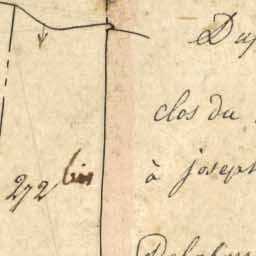 Du
clos du
à joseph
272 bis